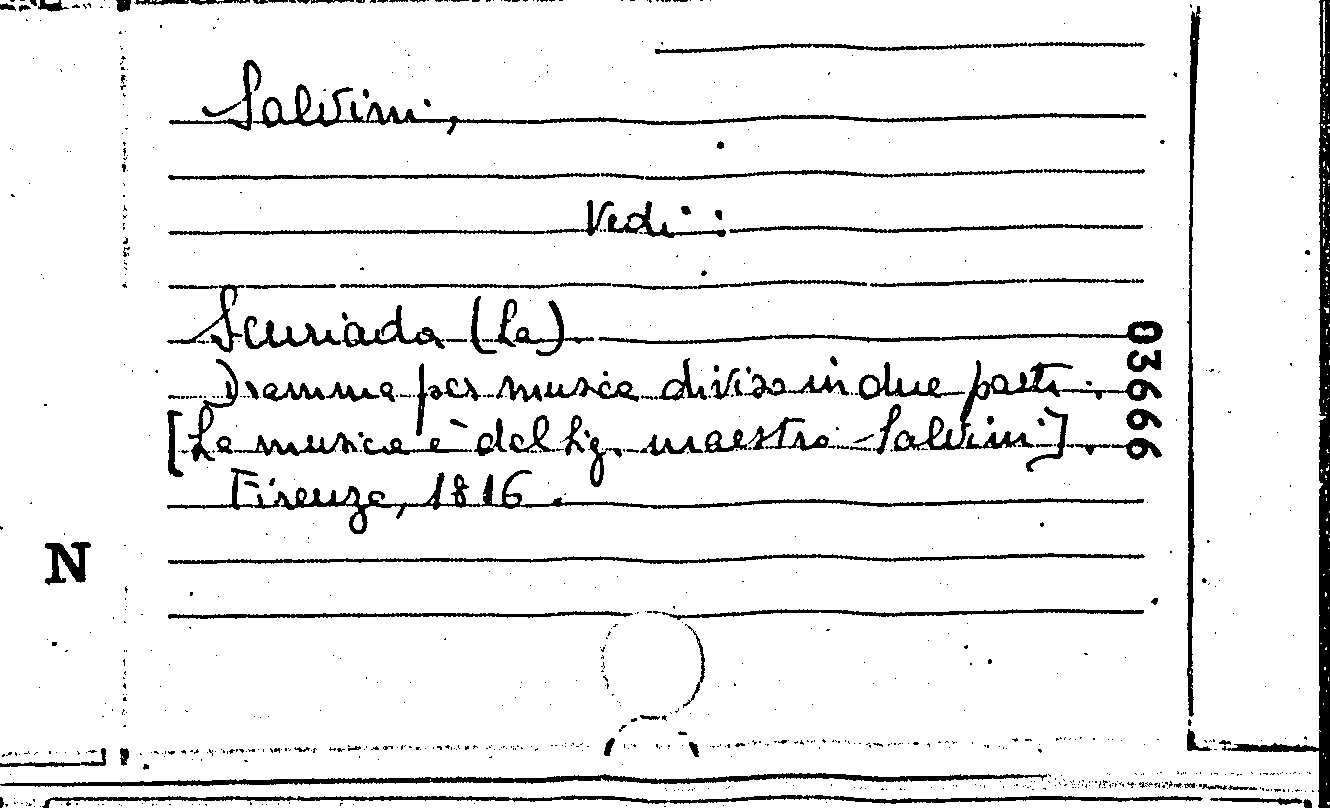 Salvini,
Vedi:
Scuriada (La).
Dramma per musica diviso in due parti.
[La musica è del Sig. maestro Salvini].
Firenze, 1816.
03666
N